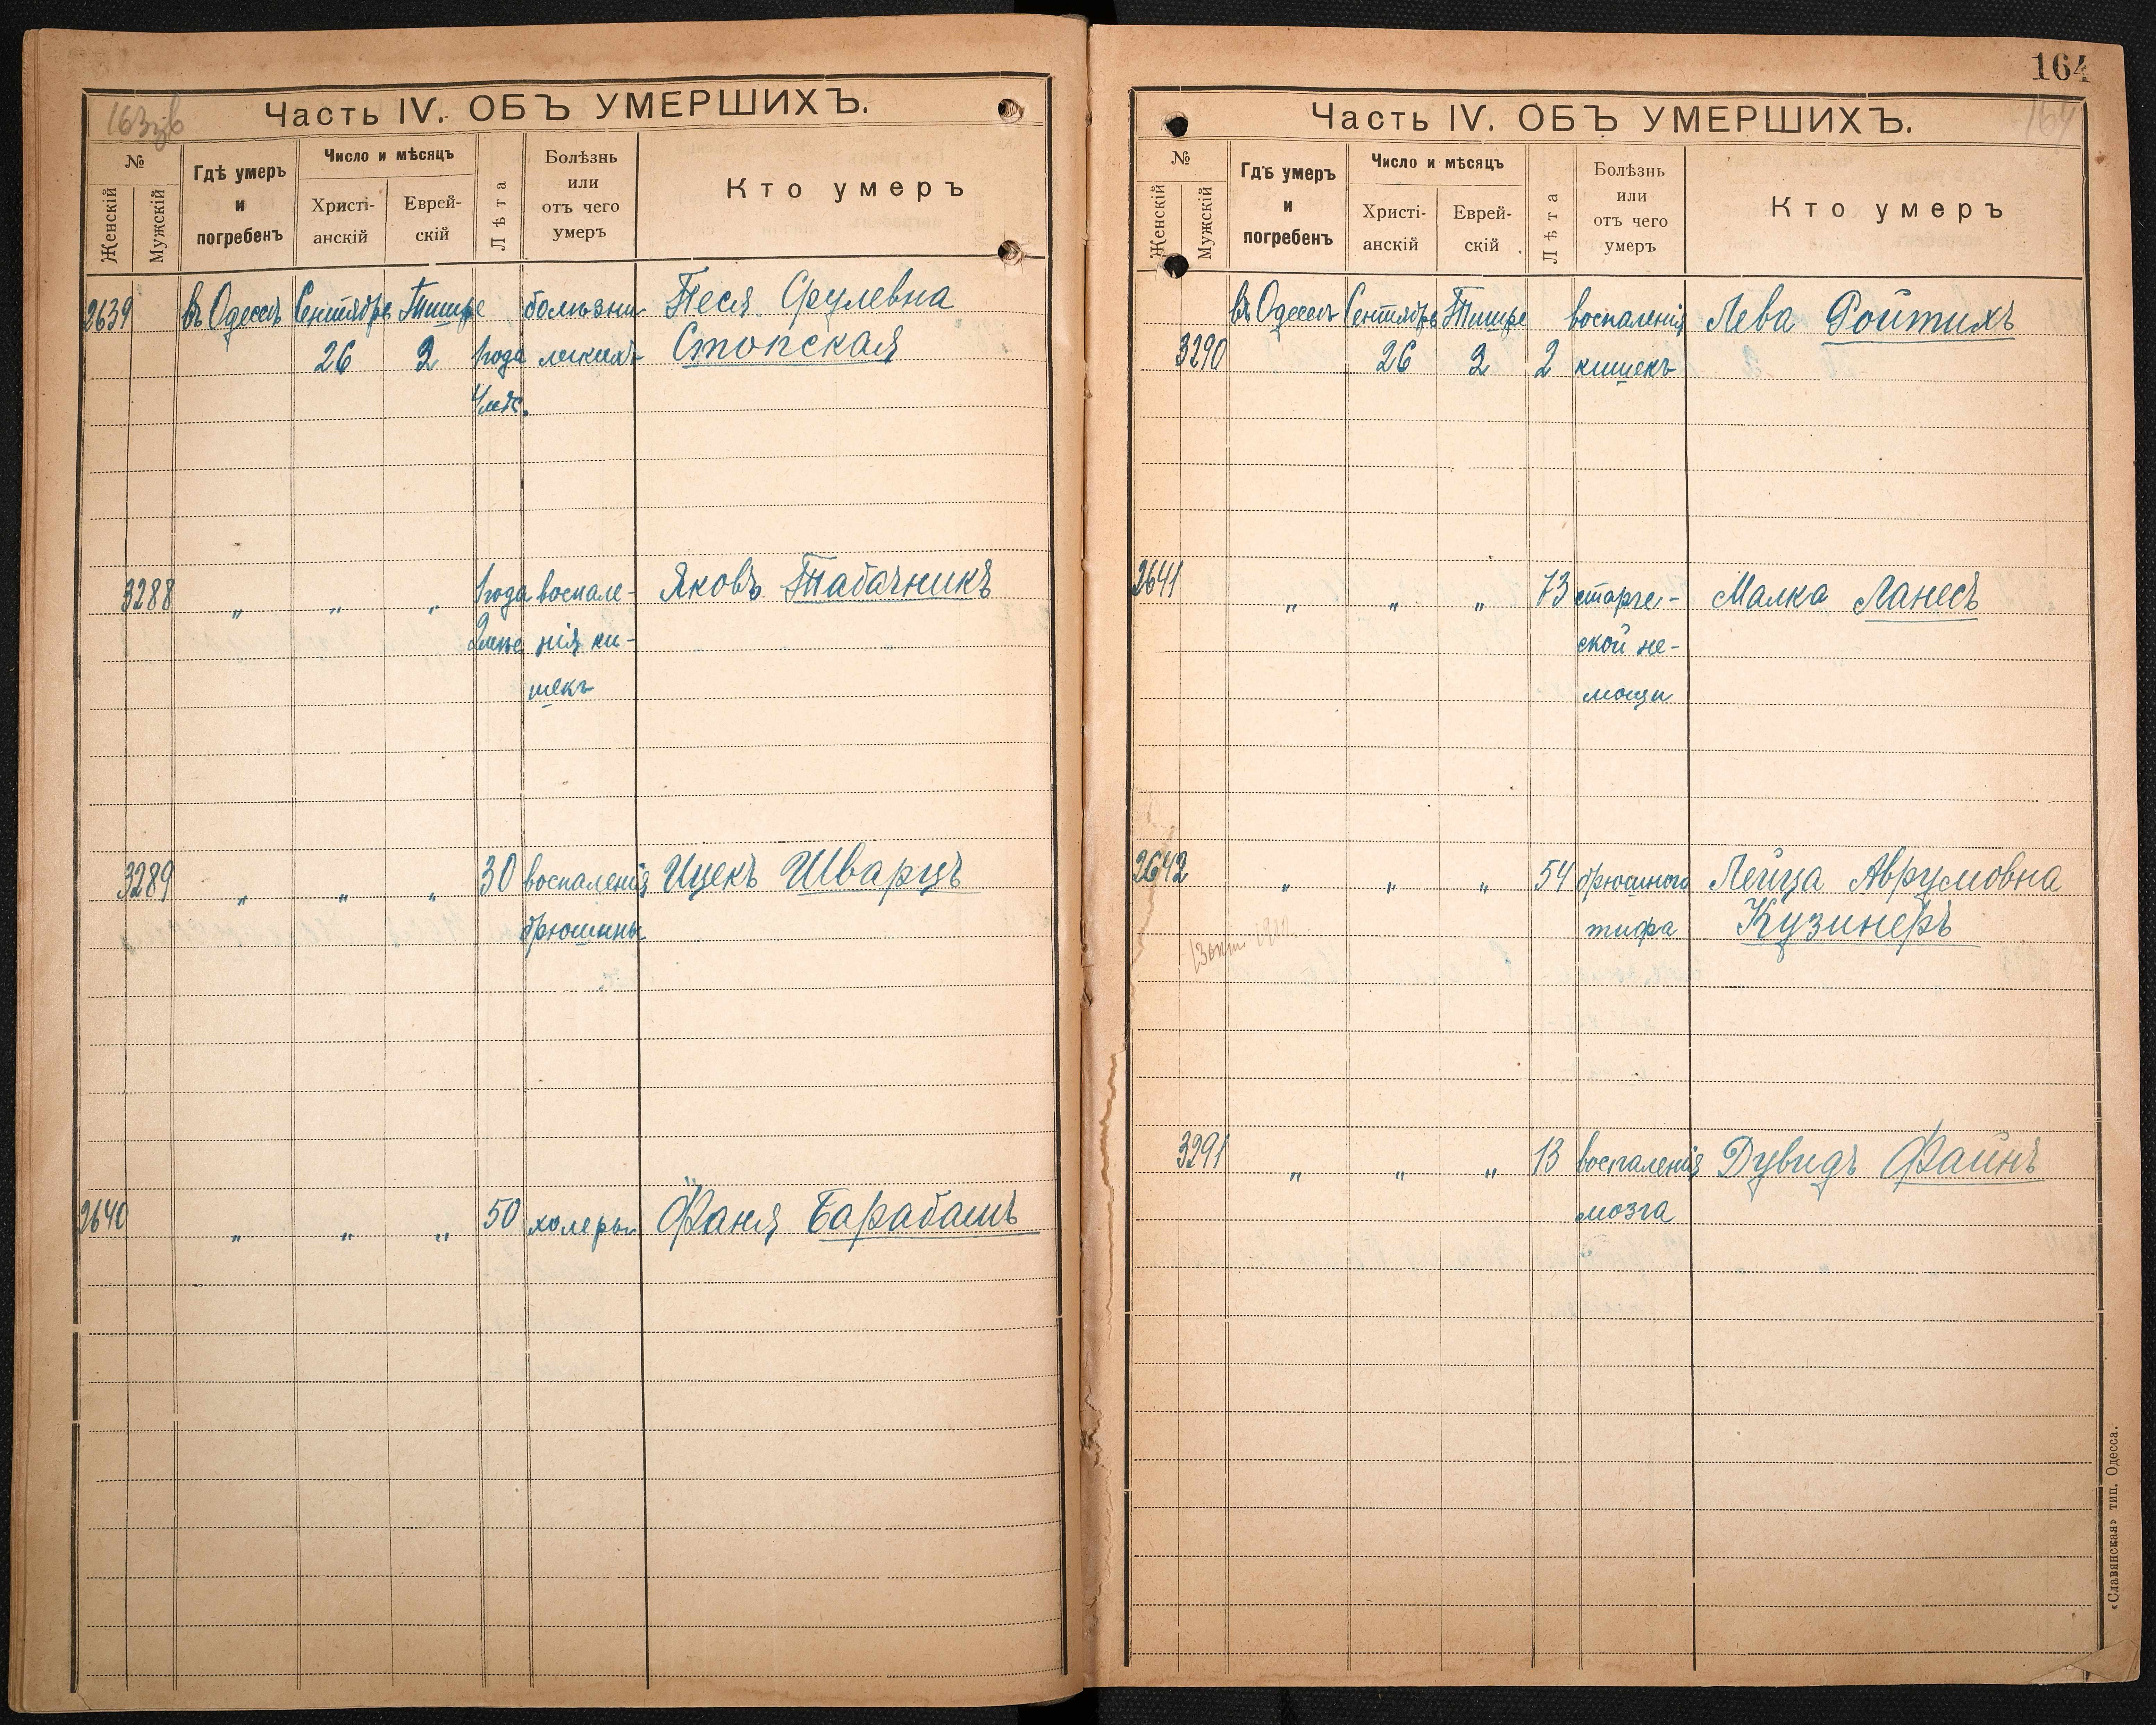 163зв
Часть IV. ОБЪ УМЕРШИХЪ.
№
Женскій
Мужскій
Гдѣ умеръ
и
погребенъ
Число и мѣсяцъ
Христі-
анскій
Еврей-
скій
Лѣта
Болѣзнь
или
отъ чего
умеръ
Кто умеръ
2639 въ Одессѣ Сентябрь Тишре болѣзни Песя Срулевна
26 2 1 года легкихъ Стопская
4 мѣс.
3288 „ „ „ 1 года воспале- Яковъ Табачникъ
2 мѣс нія ки-
шекъ
3289 „ „ „ 30 воспаленія Ицекъ Шварцъ
брюшины
2640 „ „ „ 50 холеры Фаня Барабашъ
164
Часть IV. ОБЪ УМЕРШИХЪ.
164
№
Женскій
Мужскій
Гдѣ умеръ
и
погребенъ
Число и мѣсяцъ
Христі-
анскій
Еврей-
скій
Лѣта
Болѣзнь
или
отъ чего
умеръ
Кто умеръ
въ Одессѣ Сентябрь Тишре воспаленія Лева Ройтихъ
3290 26 2 2 кишекъ
2641 „ „ „ 73 старче- Малка Ланесъ
ской не-
мощи
2642 „ „ „ 54 брюшного Лейца Аврумовна
тифа Кузинеръ
3291 „ „ „ 13 воспаленія Дувидъ Файнъ
мозга
«Славянская» тип. Одесса.